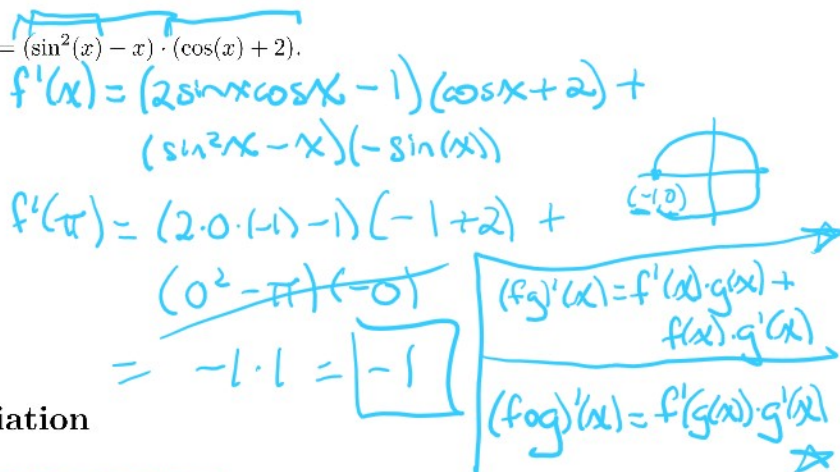 = (sin²(x) − x) · (cos(x) + 2).
f'(x) = (2sinxcosx − 1)(cosx + 2) +
(sin²x − x)(−sin(x))
(−1,0)
f'(π) = (2·0·(−1) − 1)(−1 + 2) +
(0² − π)(−0)
= −1·1 = −1
(fg)'(x) = f'(x)·g(x) +
f(x)·g'(x)
(fog)'(x) = f'(g(x))·g'(x)
iation